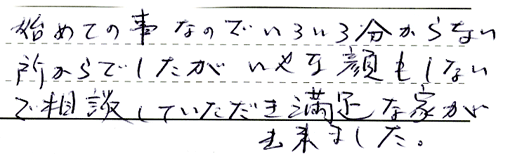 始めての事なのでいろいろ分からない
所からでしたが いやな顔もしない
で相談していただき満足な家が
出来ました。